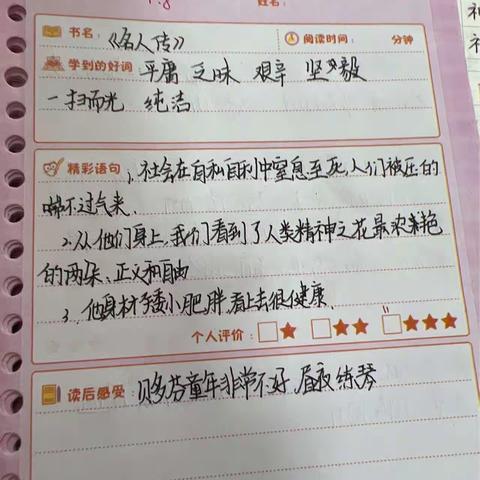 7.8 姓名:
书名: 《名人传》 阅读时间: 分钟
学到的好词 平庸 乏味 艰辛 坚毅
一扫而光 纯洁
精彩语句 1、社会在自私自利中窒息至死,人们被压的
喘不过气来.
2.从他们身上,我们看到了人类精神之花最浓艳
的两朵、正义和自由
3、他身材矮小肥胖看上去很健康.
个人评价:
读后感受: 贝多芬童年非常不好,昼夜练琴